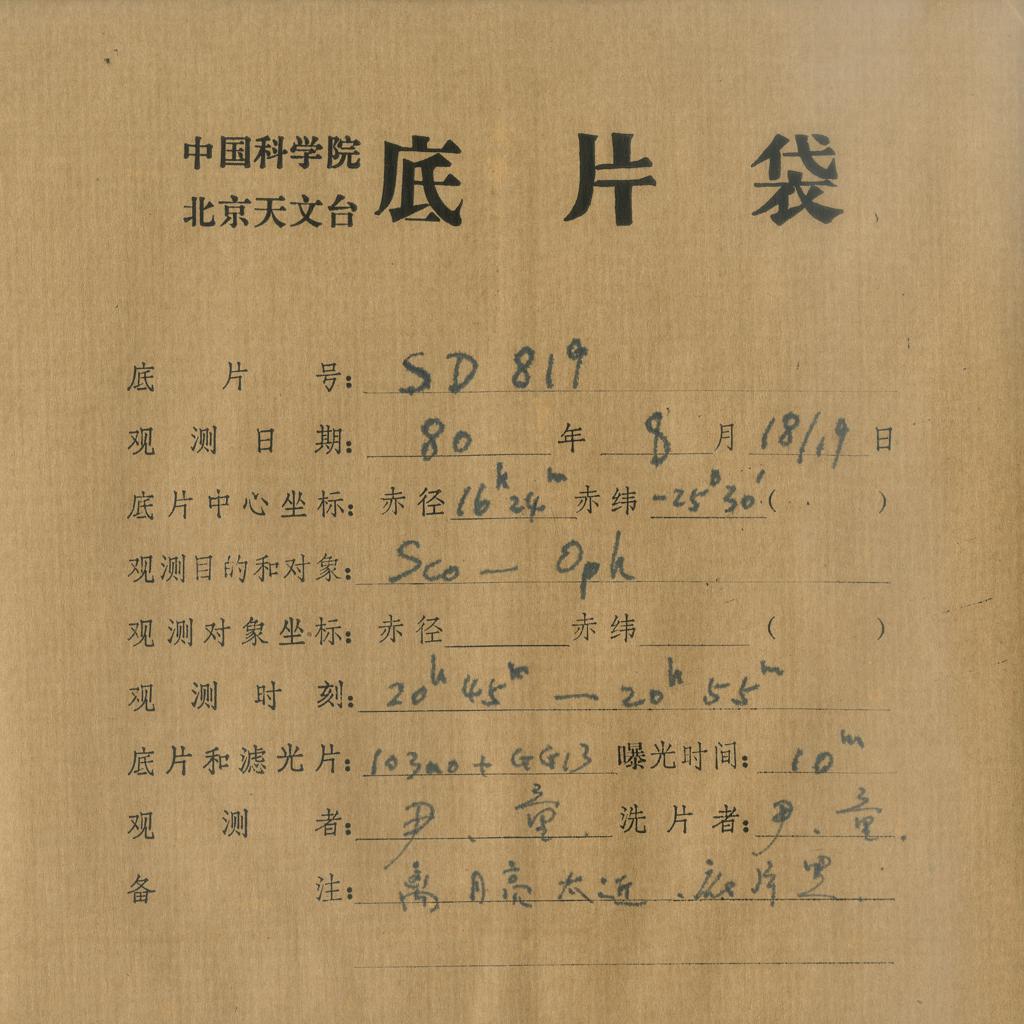 中国科学院
北京天文台
底片袋
底片号: SD 819
观测日期: 80 年 8 月 18/19 日
底片中心坐标: 赤径 16h 24m 赤纬 -25° 30′ ( )
观测目的和对象: Sco — Oph
观测对象坐标: 赤径 赤纬 ( )
观测时刻: 20h 45m — 20h 55m
底片和滤光片: 103aO + GG13 曝光时间: 10m
观测者: 尹、童. 洗片者: 尹、童.
备注: 离月亮太近、底片黑.